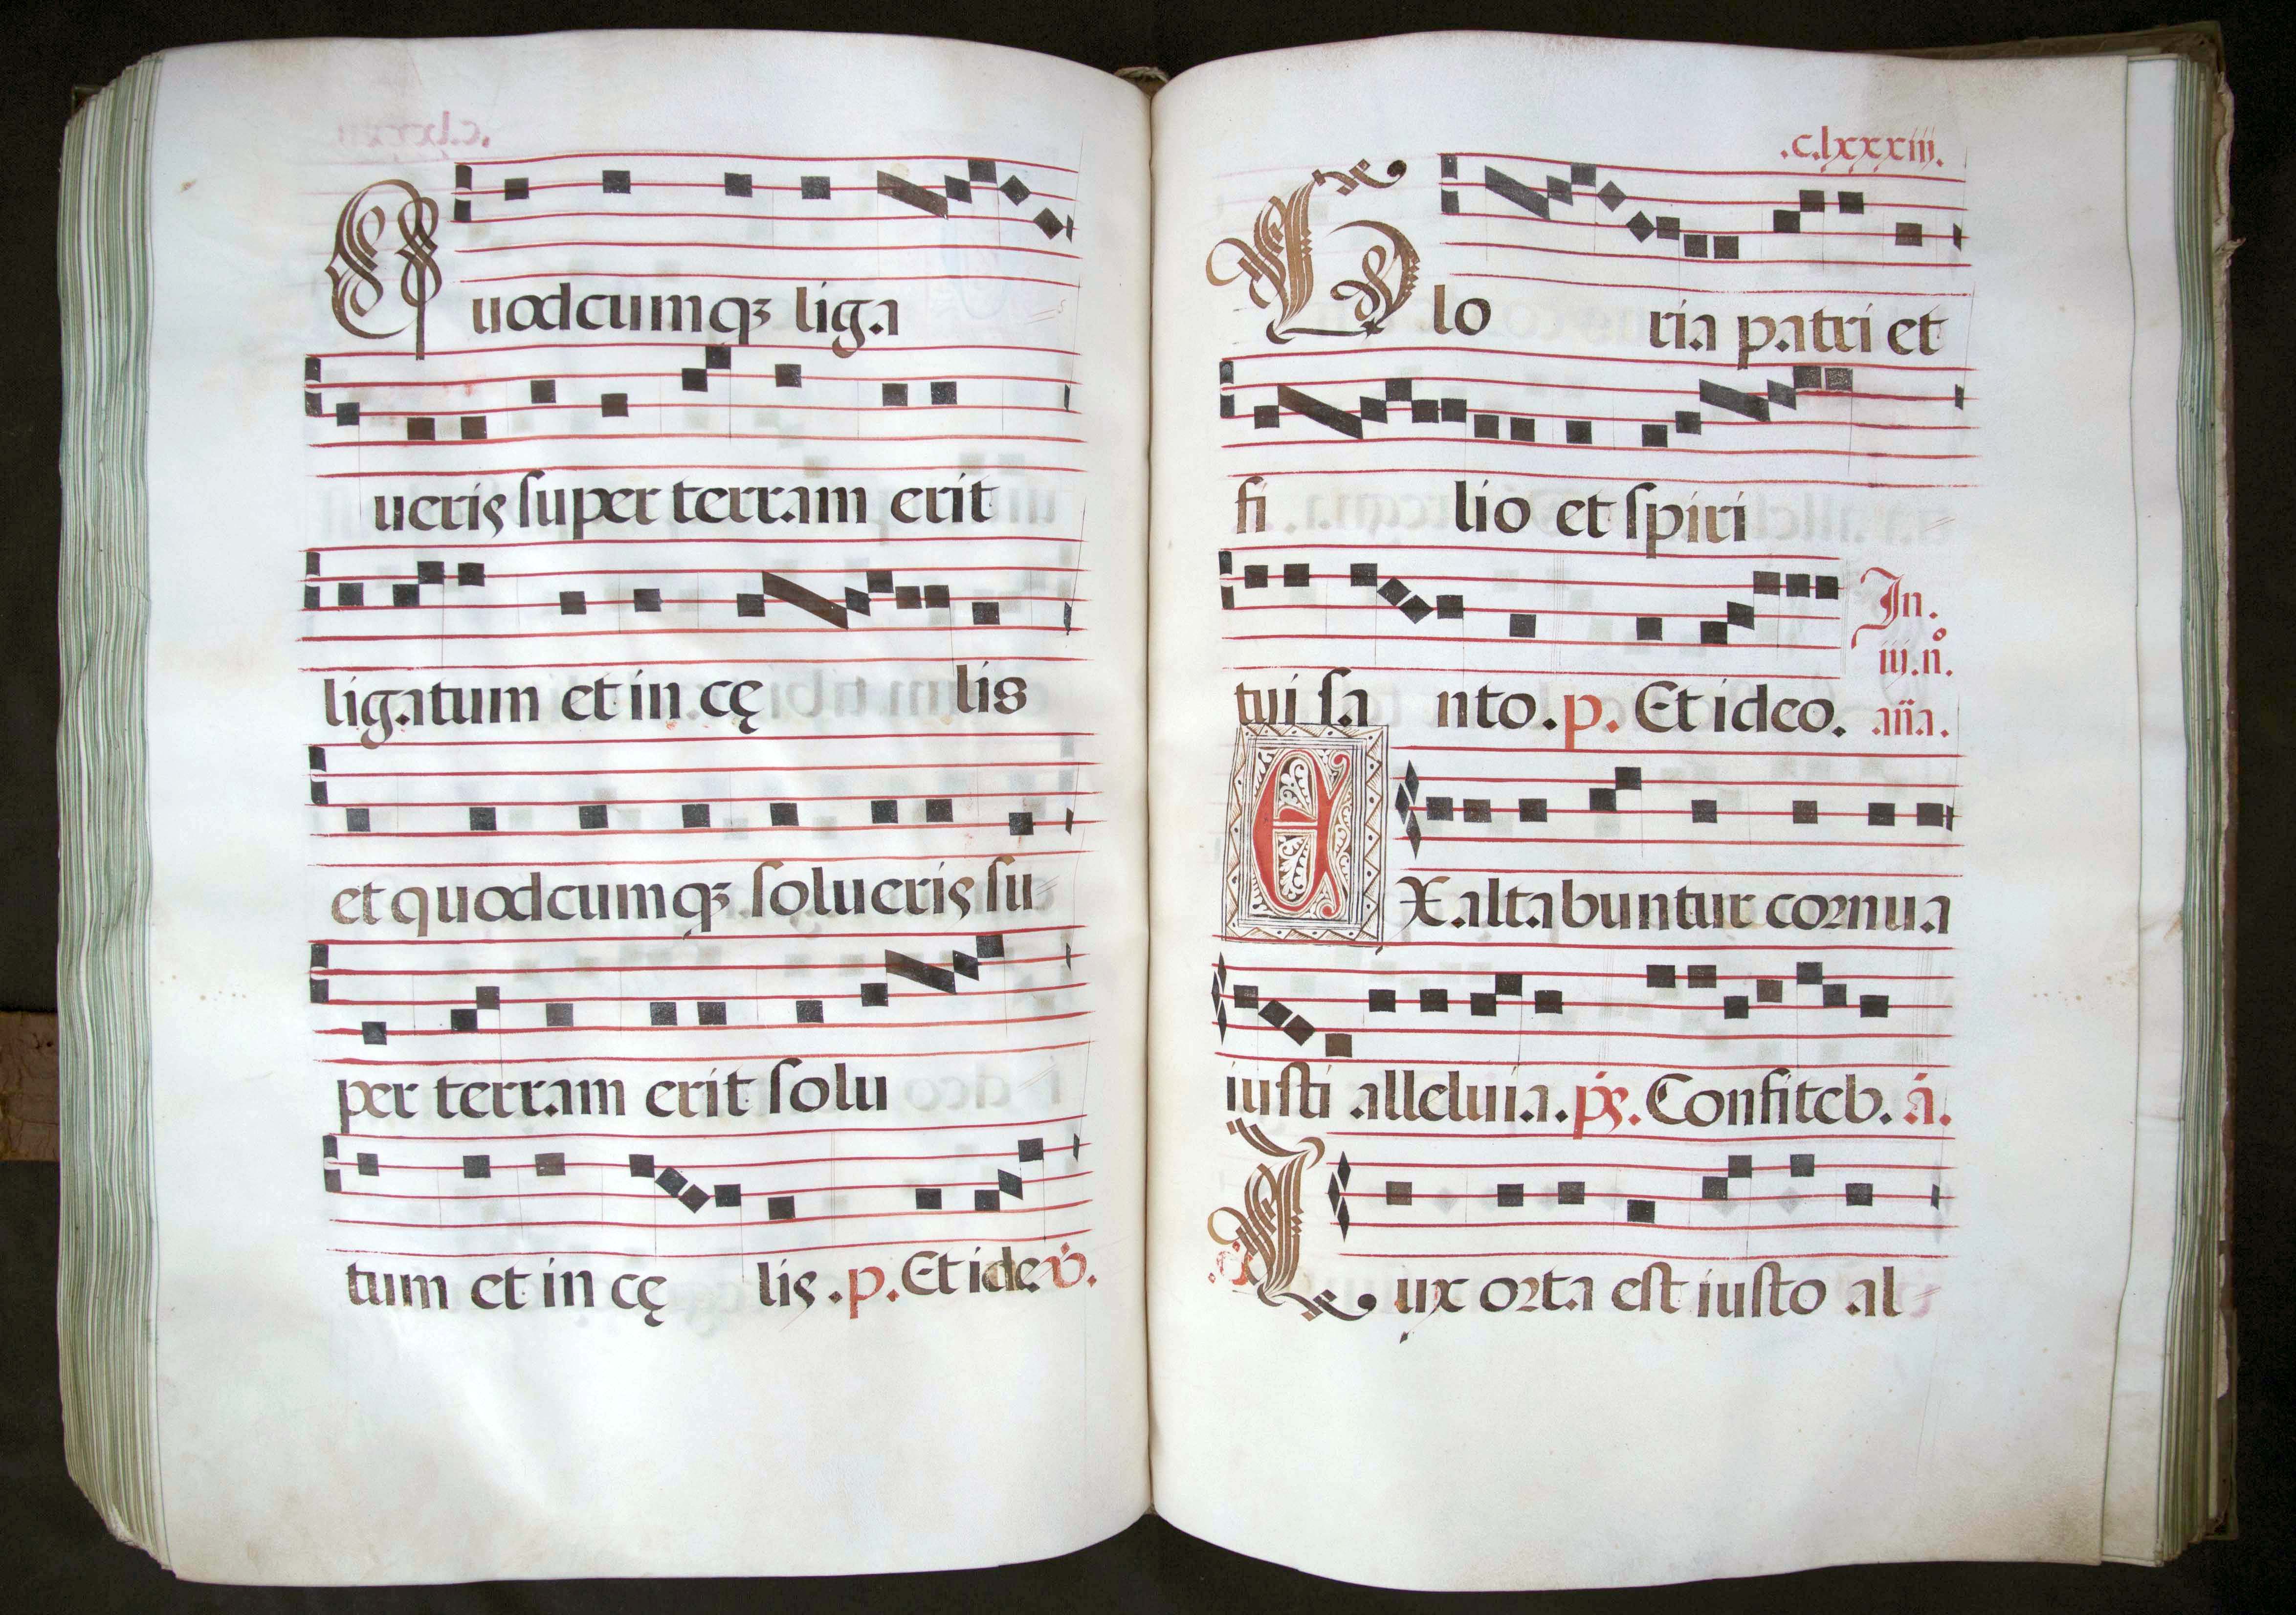 Quodcumqꝫ liga
ueris super terram erit
ligatum et in cę lis
et quodcumqꝫ solueris su
per terram erit solu
tum et in cę lis . p. Et ide. v̇.
.c.lxxxiii.
Glo ria patri et
fi lio et spiri
tui sa nto. p. Et ideo.
In.
iii.n̊.
an̄a.
EXaltabuntur cornua
iusti alleluia. ps. Confiteb. á.
Lux orta est iusto al